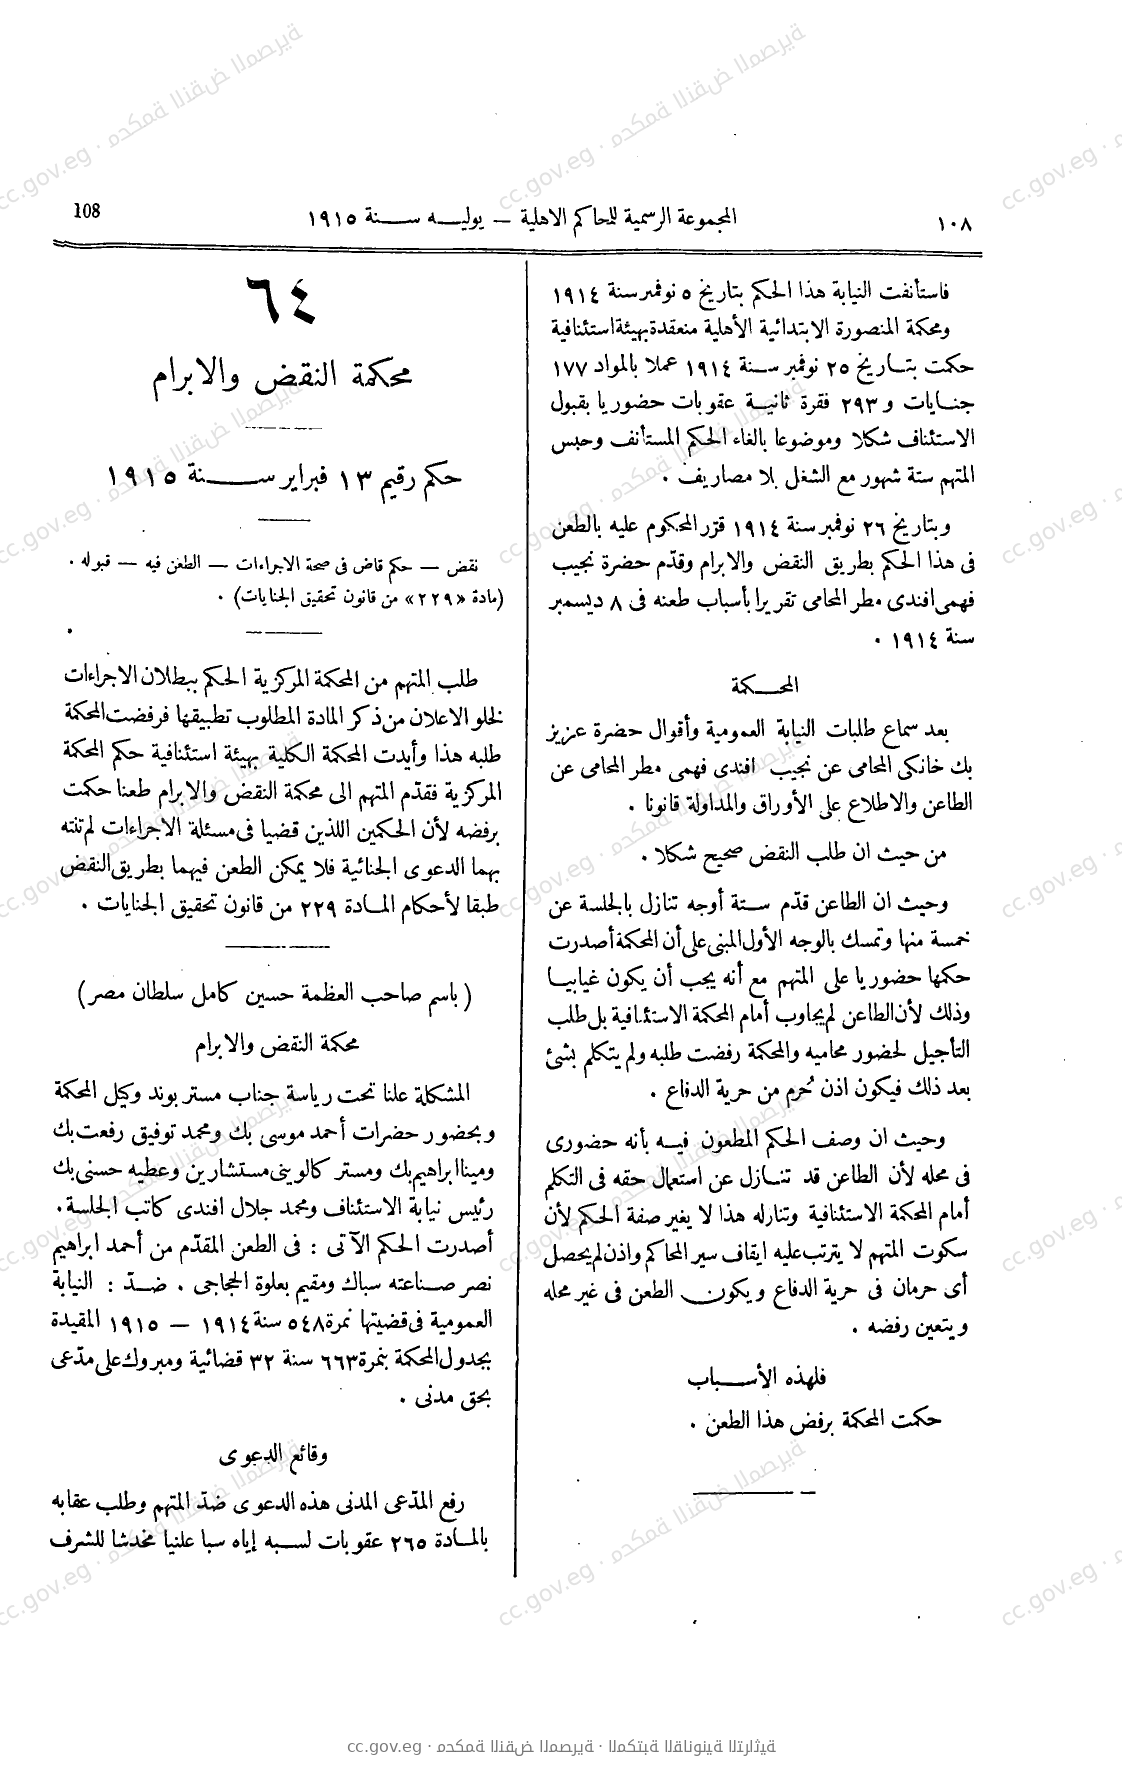 ١٠٨
المجموعة الرسمية للمحاكم الاهلية — يوليه سنة ١٩١٥
108
فاستأنفت النيابة هذا الحكم بتاريخ ٥ نوفمبر سنة ١٩١٤
ومحكمة المنصورة الابتدائية الأهلية منعقدة بهيئة استئنافية
حكمت بتاريخ ٢٥ نوفمبر سنة ١٩١٤ عملا بالمواد ١٧٧
جنايات و ٢٩٣ فقرة ثانية عقوبات حضوريا بقبول
الاستئناف شكلا وموضوعا بالغاء الحكم المستأنف وحبس
المتهم ستة شهور مع الشغل بلا مصاريف .
وبتاريخ ٢٦ نوفمبر سنة ١٩١٤ قرّر المحكوم عليه بالطعن
فى هذا الحكم بطريق النقض والابرام وقدّم حضرة نجيب
فهمى افندى مطر المحامى تقريرا بأسباب طعنه فى ٨ ديسمبر
سنة ١٩١٤ .
المحكمة
بعد سماع طلبات النيابة العمومية وأقوال حضرة عزيز
بك خانكى المحامى عن نجيب افندى فهمى مطر المحامى عن
الطاعن والاطلاع على الأوراق والمداولة قانونا .
من حيث ان طلب النقض صحيح شكلا .
وحيث ان الطاعن قدّم ستة أوجه تنازل بالجلسة عن
خمسة منها وتمسك بالوجه الأول المبنى على أن المحكمة أصدرت
حكمها حضوريا على المتهم مع أنه يجب أن يكون غيابيا
وذلك لأن الطاعن لم يجاوب أمام المحكمة الاستئنافية بل طلب
التأجيل لحضور محاميه والمحكمة رفضت طلبه ولم يتكلم بشئ
بعد ذلك فيكون اذن حُرم من حرية الدفاع .
وحيث ان وصف الحكم المطعون فيه بأنه حضورى
فى محله لأن الطاعن قد تنازل عن استعمال حقه فى التكلم
أمام المحكمة الاستئنافية وتنازله هذا لا يغير صفة الحكم لأن
سكوت المتهم لا يترتب عليه ايقاف سير المحاكم واذن لم يحصل
أى حرمان فى حرية الدفاع ويكون الطعن فى غير محله
ويتعين رفضه .
فلهذه الأسباب
حكمت المحكمة برفض هذا الطعن .
٦٤
محكمة النقض والابرام
حكم رقيم ١٣ فبراير سنة ١٩١٥
نقض — حكم قاض فى صحة الاجراءات — الطعن فيه — قبوله .
(مادة «٢٢٩» من قانون تحقيق الجنايات) .
طلب المتهم من المحكمة المركزية الحكم ببطلان الاجراءات
لخلو الاعلان من ذكر المادة المطلوب تطبيقها فرفضت المحكمة
طلبه هذا وأيدت المحكمة الكلية بهيئة استئنافية حكم المحكمة
المركزية فقدّم المتهم الى محكمة النقض والابرام طعنا حكمت
برفضه لأن الحكمين اللذين قضيا فى مسئلة الاجراءات لم تنته
بهما الدعوى الجنائية فلا يمكن الطعن فيهما بطريق النقض
طبقا لأحكام المادة ٢٢٩ من قانون تحقيق الجنايات .
(باسم صاحب العظمة حسين كامل سلطان مصر)
محكمة النقض والابرام
المشكلة علنا تحت رياسة جناب مستر بوند وكيل المحكمة
وبحضور حضرات أحمد موسى بك ومحمد توفيق رفعت بك
ومينا ابراهيم بك ومستر كالوينى مستشارين وعطيه حسنى بك
رئيس نيابة الاستئناف ومحمد جلال افندى كاتب الجلسة .
أصدرت الحكم الآتى : فى الطعن المقدّم من أحمد ابراهيم
نصر صناعته سباك ومقيم بعلوة الحجاجى . ضدّ : النيابة
العمومية فى قضيتها نمرة ٥٤٨ سنة ١٩١٤ — ١٩١٥ المقيدة
بجدول المحكمة بنمرة ٦٦٣ سنة ٣٢ قضائية ومبروك على مدّعى
بحق مدنى .
وقائع الدعوى
رفع المدّعى المدنى هذه الدعوى ضدّ المتهم وطلب عقابه
بالمادة ٢٦٥ عقوبات لسبه إياه سبا علنيا مخدشا للشرف
cc.gov.eg · محكمة النقض المصرية · المكتبة القانونية التراثية